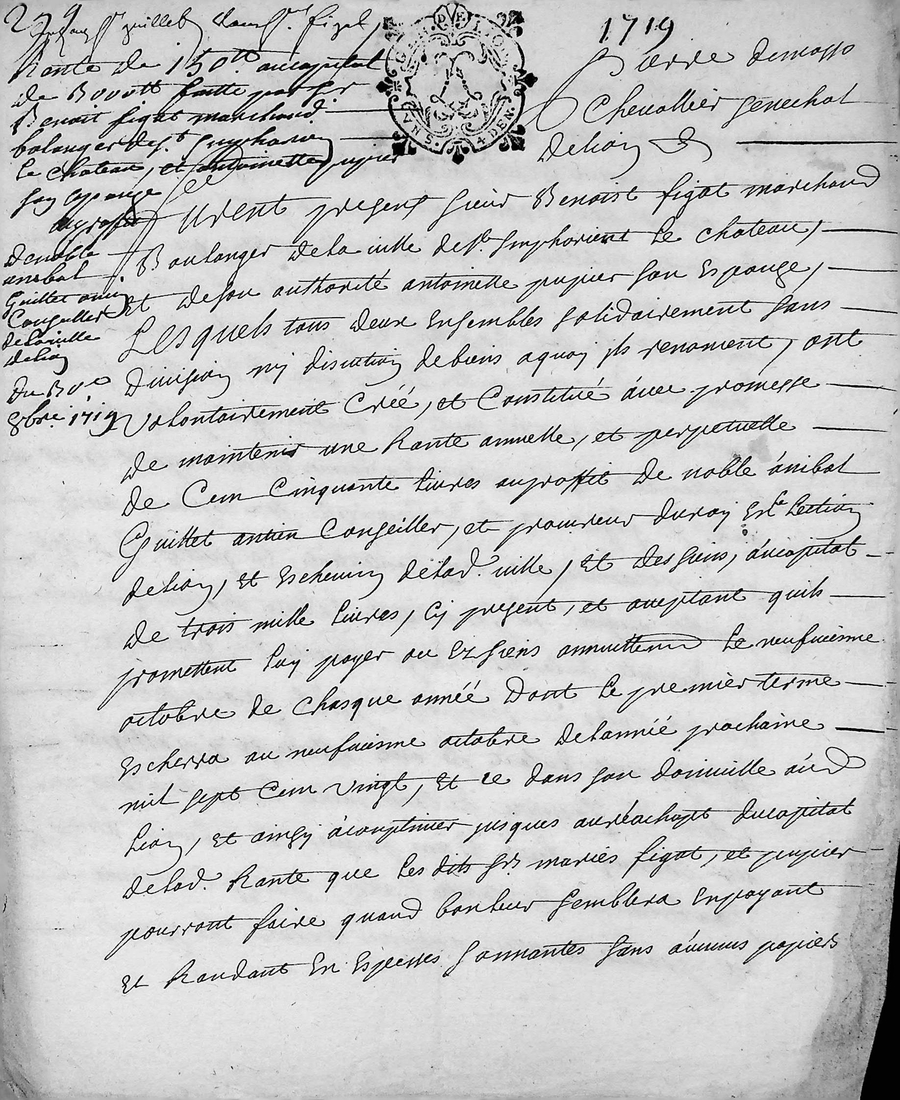 1719
Rante de 150tt aucapital
de 3000tt faitte par Sr
Benoit figat marchand
bolanger de St Simphorien
le chateau, et antoinette pupier
son espouze
au proffit
de noble
anibal
Guillet antien
Conseiller
de la ville
de Lion
Du 30e
8bre 1719
Pierre demasso
Chevallier Senechal
de Lion &
Furent presents sieur Benoist figat marchand
Boulanger de la ville de St Simphorient le chateau,
et de son authorité antoinette pupier son Espouze,
Lesquels tous deux Ensembles solidairement sans
Division ny discution de biens a quoy ils renoncent, ont
volontairement Créé, et Constitué avec promesse
de maintenir une Rante annuelle, et perpetuelle
de Cent Cinquante livres au proffit de noble ánibal
Guillet antien Conseiller, et procureur du roy En l'Ection
de Lion, Et Eschevin de lad. ville, Et des siens, au capital
de trois mille livres, Cy present, et aceptant quils
promettent luy payer ou Ez siens annuellement le neufvieme
octobre de Chasque année Dont le premier terme
Escherra au neufvieme octobre de l'année prochaine
mil sept Cent vingt, Et ce dans son domicille aud
Lion, Et ainsy a continuer jusques au réachapt du capital
de lad. Rante que les dits Srs mariés figat, et pupier
pourront faire quand bon leur semblera En payant
Et Randant En Especes sonnantes sans aucuns papiers